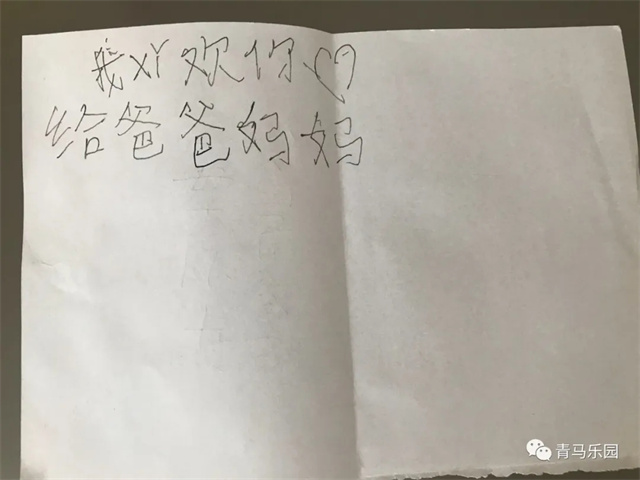 我xi欢你♡
给爸爸妈妈
青马乐园